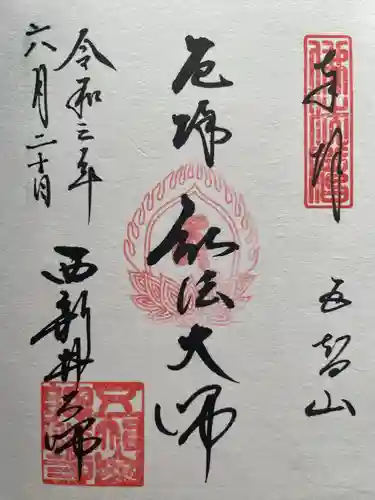 奉拝
五智山
厄除 弘法大師
令和三年
六月二十日
西新井大師